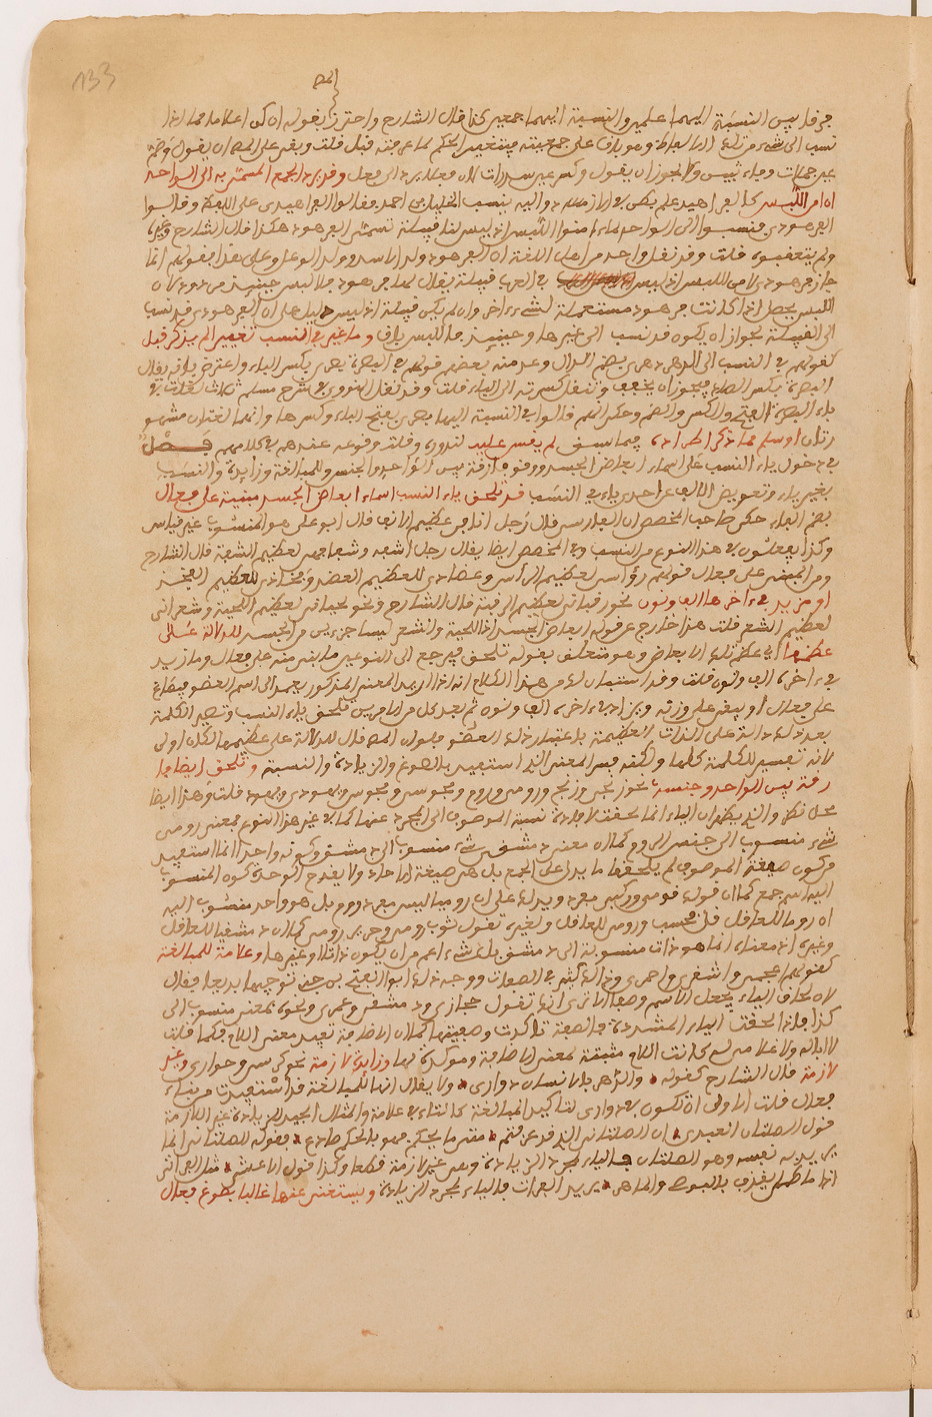 133
فرقا بين النسبة اليهما علمين والنسبة اليهما جمعين كذا قال الشارح واحترز بقوله ان كن اعلاما مما اذا
نسب الى شيء من تلك الالفاظ وهو باق على جمعيته فيتغير الحكم كما عرفته قبل قلت وبقي على المص ان يقول وضم
عين ولا يجوز ان يقول وكسر عين سدرات لان فعلا يرد الى فعل وقد يرد الجمع المسمى به الى الواحد
ان امن اللبس كالفراهيد علم بطن من الازد واليه ينسب الخليل بن احمد فقالوا الفراهيدي على اللفظ وقالوا
الفرهودي فنسبوا الى الواحد لما امنوا اللبس اذ ليس لنا قبيلة تسمى الفرهود هكذا قال الشارح وغيره
ولم يتعقبوه قلت وقد نقل واحد من اهل اللغة ان الفرهود ولد الاسد وولد الوعل وعلى هذا فقولهم انما
جاز فرهودي لامن اللبس اذ ليس في العرب قبيلة يقال لها فرهود فاللبس حينئذ مردود لان
اللبس يحصل اذا كانت فرهود مستعملة لشيء اخر وان لم يكن قبيلة اذ ليس دليل على ان الفرهودي قد نسب
الى القبيلة لجواز ان يكون قد نسب الى غيرها وحينئذ فاللبس باق وما غير في النسب تغييرا لم يذكر قبل
كقولهم في النسب الى الدهر دهري بضم الدال وعد منه بعضهم قولهم في البصرة بصري بكسر الباء واعترض بانه يقال
البصرة بكسر الصاد فيجوز ان يخفف وتنقل كسرته الى الباء قلت وقد نقل النووي في شرح مسلم ثلاث لغات في
باء البصرة الفتح والكسر والضم وحكى انهم قالوا في النسبة اليها بصري بفتح الباء وكسرها وانهما لغتان مشهو
رتان او سلم مما ذكر اطراده فيما سبق لم يقس عليه لندوره وقلة وقوعه عندهم في كلامهم فصل
في دخول ياء النسب على اسماء ابعاض الجسد ووقوعها فارقة بين الواحد والجنس وللمبالغة وزايدة والنسب
بغير ياء وتعويض الالف عن احدى ياءي النسب قد تلحق ياء النسب اسماء ابعاض الجسد مبنية على فعال
بضم الفاء حكى صاحب المخصص ان الفارسي قال رجل انافي عظيم الانف قال ابو علي هو المنسوب غير قياس
وكذا يفعلون في هذا النوع من النسب وفي المخصص ايضا يقال رجل اشفه وشفاهي لعظيم الشفة قال الشارح
ومن المبني على فعال قولهم رؤاسي لعظيم الراس وعضادي للعظيم العضد وفخاذي للعظيم الفخذ
او مزيد في اخرها الف ونون نحو رقباني لعظيم الرقبة قال الشارح ونحو لحياني لعظيم اللحية وشعراني
لعظيم الشعر قلت هذا خارج عن قوله ابعاض الجسد اذ اللحية والشعر ليسا جزءين من الجسد للدلالة على
عظمها اي عظم تلك الابعاض وهو متعلق بقوله تلحق فيرجع الى النوعين ما بني منه على فعال وما زيد
في اخره الف ونون قلت وقد استبان لك من هذا الكلام انه اذا اريد المعنى المذكور يعمد الى اسم العضو فيصاغ
على فعال او يبقى على وزنه ويزاد في اخره الف ونون ثم بعد كل من الامرين تلحق ياء النسب وتصير الكلمة
بعد ذلك دالة على الذات العظيمة باعتبار ذلك العضو فلو ان المص قال للدلالة على عظيمها لكان اولى
لانه تفسير للكلمة كلها ولكنه فسر المعنى الذي استفيد بالصوغ والزيادة والنسبة وتلحق ايضا فا
رقة بين الواحد وجنسه نحو زنجي وزنج ورومي وروم ومجوسي ومجوس ويهودي ويهود قلت وهذا ايضا
محل نظر والذي يظهر ان الياء انما لحقت لافادة نسبة الموصوف الى المجرد عنها كما في غير هذا النوع فمعنى رومي
شيء منسوب الى جنس الروم كما ان معنى دمشقي شيء منسوب الى دمشق وكونه واحدا انما استفيد
من كون صيغة الموصوف لم يلحقها ما يدل على الجمع بل هي صيغة الاحاد ولا يقدح في الوحدة كون المنسوب
اليه اسم جمع كما ان قولك قومي وركبي مفرد ويدلك على ان روميا ليس مفرد روم بل هو واحد منسوب اليه
ان روما للعاقل فحسب ورومي للعاقل ولغيره تقول ثوب رومي وحرير رومي كما ان دمشقيا للعاقل
وغيره اذ معناه انما هو ذات منسوبة الى دمشق باي شيء اعم من ان يكون عاقلا او غيرها وعلامة للمبالغة
كقولهم اعجمي واشقري واحمري وذلك كثير في الصفات ووجه ذلك ابو الفتح بن جني توجيها بديعا فقال
لان لحاق الياء يجعل الاسم وصفا الا ترى انك تقول حجازي ودمشقي وعمري ونحوه بمعنى منسوب الى
كذا فاذا الحقت الياء المشددة في الصفة تاكدت وصفيتها كما ان الاضافة تفيد معنى اللام فكما قلت
لا ابا له ولا غلامي لك كانت اللام مثبتة لمعنى الاضافة وموكدة لها وزايدة لازمة نحو كرسي وحواري وغير
لازمة قال الشارح كقوله والدهر بالانسان دواري ولا يقال انها للمبالغة قد استفيدت من بناء
فعال قلت الاولى ان تكون في دواري لتاكيد المبالغة كالتاء في علامة والمثال الجيد للزيادة غير اللازمة
قول الصلتان العبدي انا الصلتاني الذي قد علمتم متى ما يحكم فهو بالحكم صادع فقوله الصلتاني انما
يريد به نفسه وهو الصلتان فالياء لمجرد الزيادة وهي غير لازمة قطعا وكذا قول الاعشى مثل الفراتي
اذا ما طما يقذف بالبوصي والماهر يريد الفرات فالياء لمجرد الزيادة ويستغنى عنها غالبا بصوغ فعال